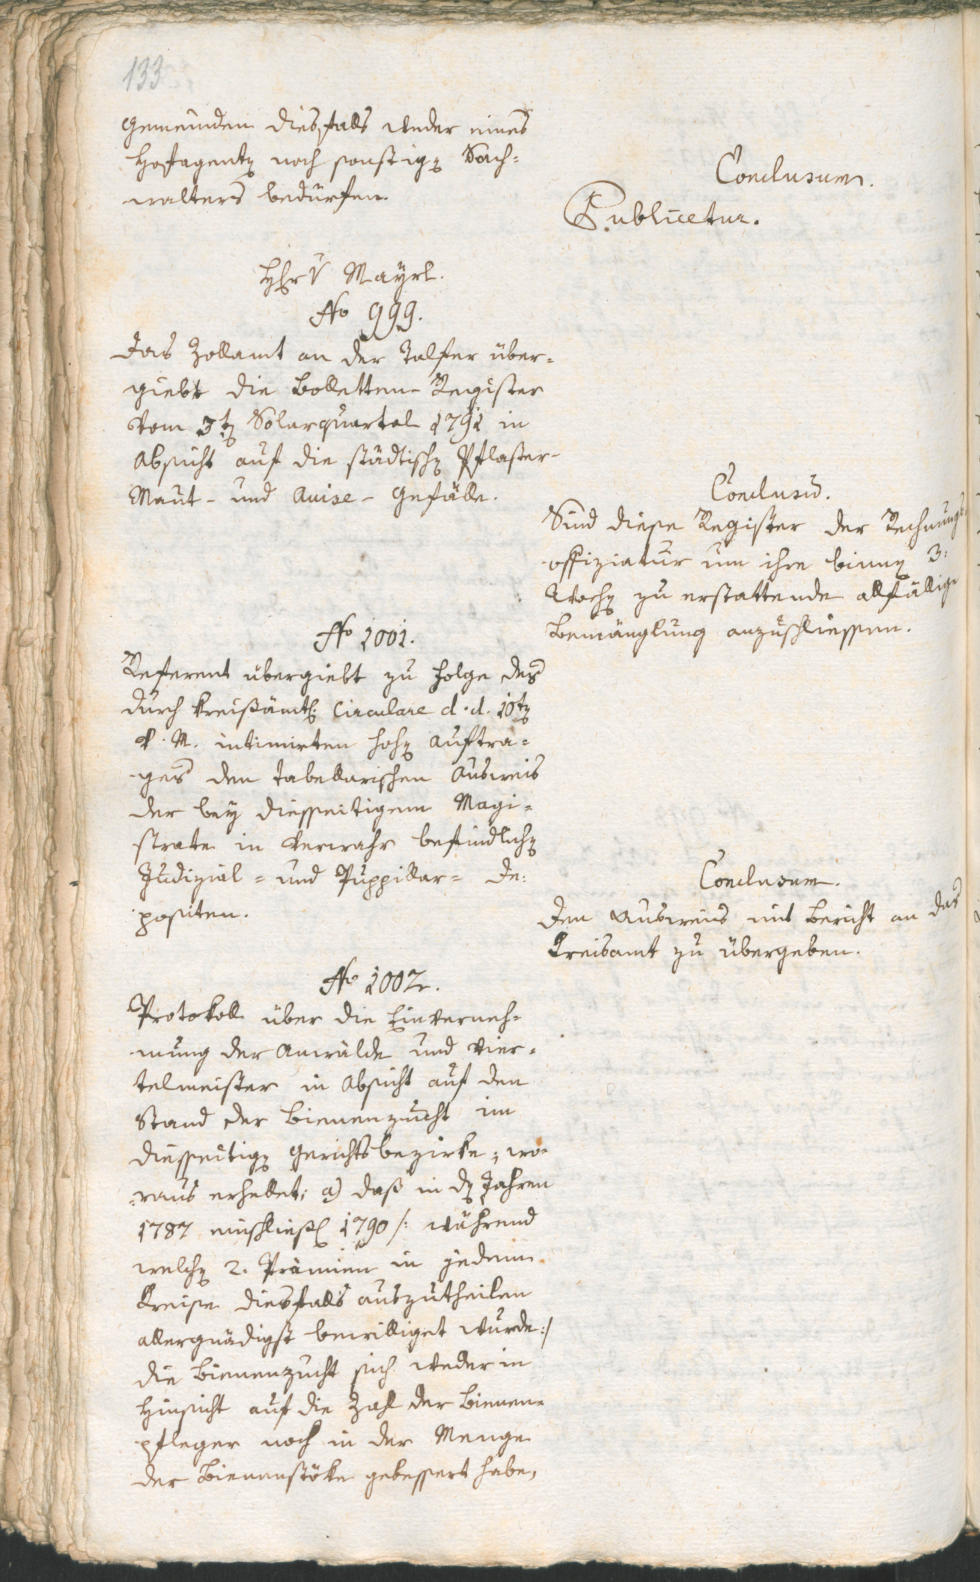 133
Gemeinden diesfalls weder eines
Hofagenten noch sonstigen Sach-
walters bedürfen.
Conclusum.
Publicetur.
Hr v Mayrl.
No 999.
Das Zollamt an der Talfer über-
giebt die Bolletten-Register
vom 3ten Solarquartal 1791 in
Absicht auf die städtischen Pflaster-
Maut- und Avise-Gefälle.
Conclusū.
Sind diese Register der Rechnungs
offiziatur um ihre binnen 3:
Wochen zu erstattende allfällige
Bemänglung anzuschliessen.
No 1001.
Referent übergiebt zu Folge des
durch kreisämtl: Circulare d.d. 10ten
v. M. intimirten hohen Auftra-
ges den tabellarischen Ausweis
der bey diesseitigem Magi-
strate in Verwahr befindlichen
Judizial- und Puppillar- De:
positen.
Conclusum.
Den Ausweis mit Bericht an das
Kreisamt zu übergeben.
No 1002.
Protokoll über die Einverneh-
mung der Anwälde und Vier-
telmeister in Absicht auf den
Stand der Bienenzucht im
diesseitigen Gerichtsbezirke; wo-
raus erhellet; a) daß in den Jahren
1787 einschließl 1790 /: während
welchen 2. Prämien in jedem
Kreise diesfalls auszutheilen
allergnädigst bewilliget wurde:/
die Bienenzucht sich weder in
Hinsicht auf die Zahl der Bienen-
pfleger noch in der Menge
der Bienenstöke gebessert habe,